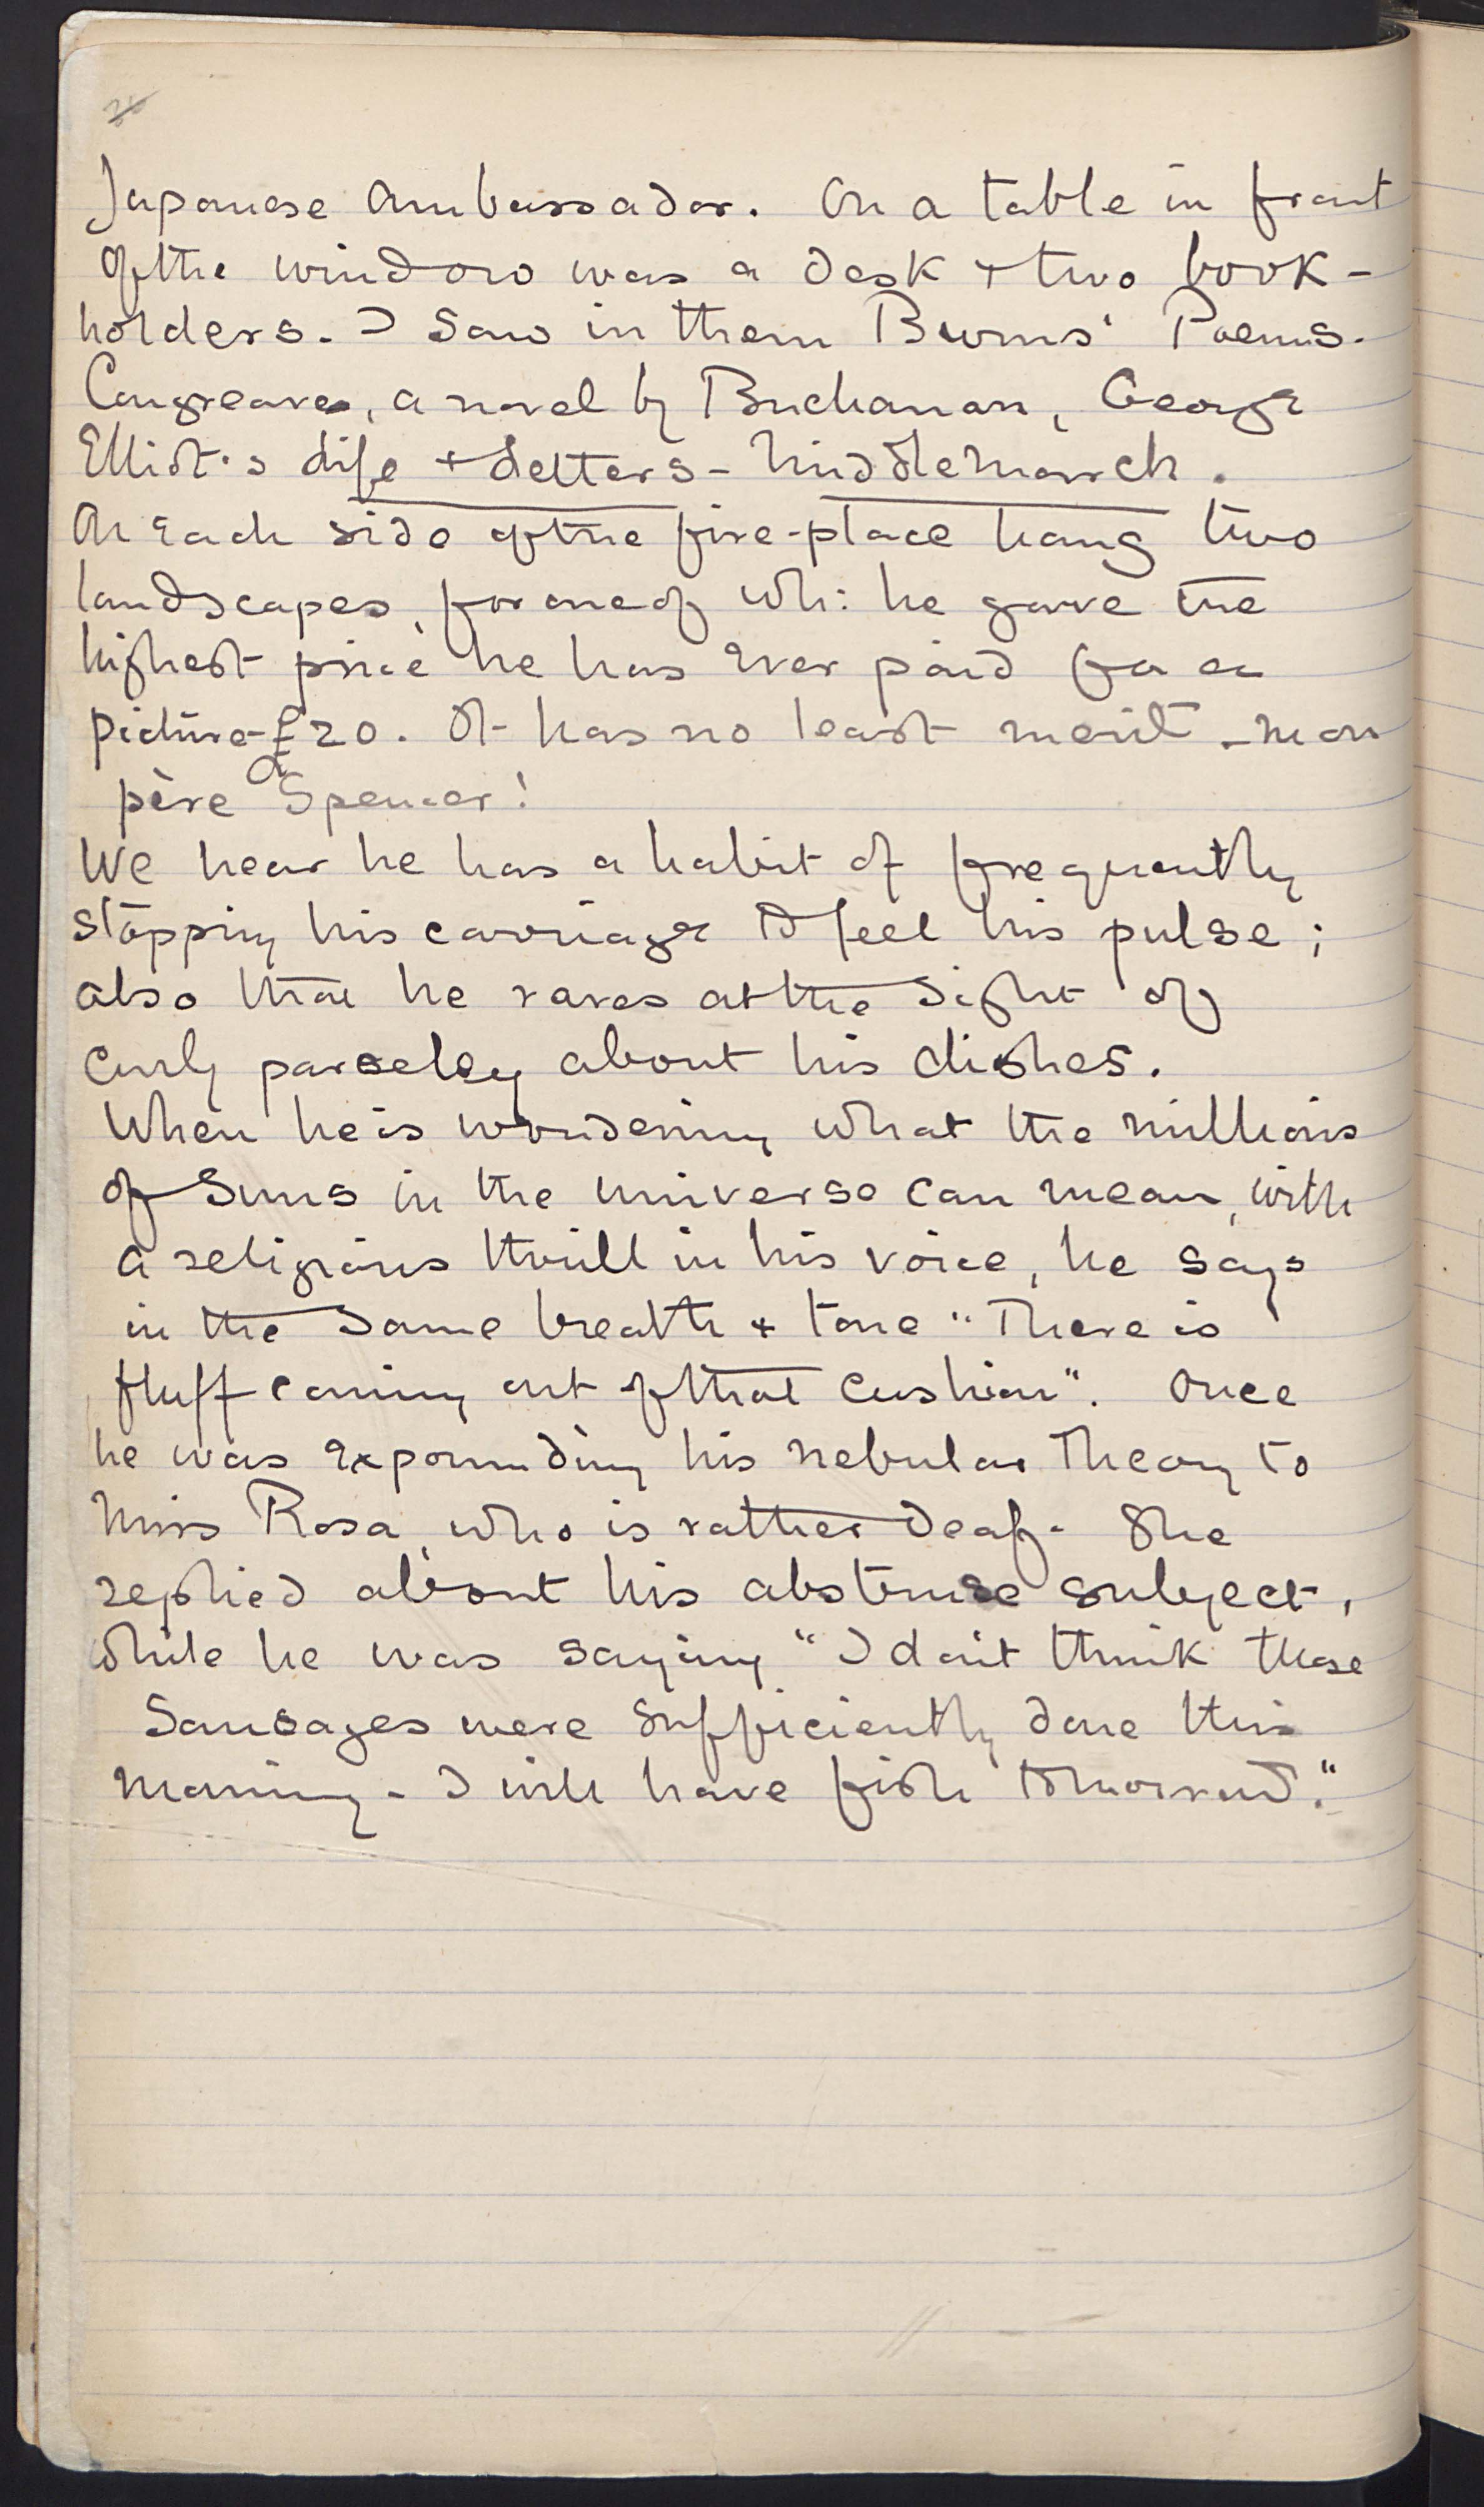 Japanese Ambassador. On a table in front
of the window was a desk + two book-
holders. I saw in them Burns' Poems.
Congreave, a novel by Buchanan, George
Elliot's Life + Letters - Middlemarch.
On each side of the fire-place hang two
landscapes, for one of wh: he gave the
highest price he has ever paid for a
picture - £20. It has no least merit - mon
père Spencer!
We hear he has a habit of frequently
stopping his carriage to feel his pulse;
also that he raves at the sight of
curly parseley about his dishes.
When he is wondering what the millions
of Suns in the universe can mean, with
a religious thrill in his voice, he says
in the same breath + tone "There is
fluff coming out of that cushion". Once
he was expounding his nebular theory to
Miss Rosa, who is rather deaf. She
replied about his abstruse subject,
while he was saying "I don't think those
Sausages were sufficiently done this
morning - I will have fish tomorrow."